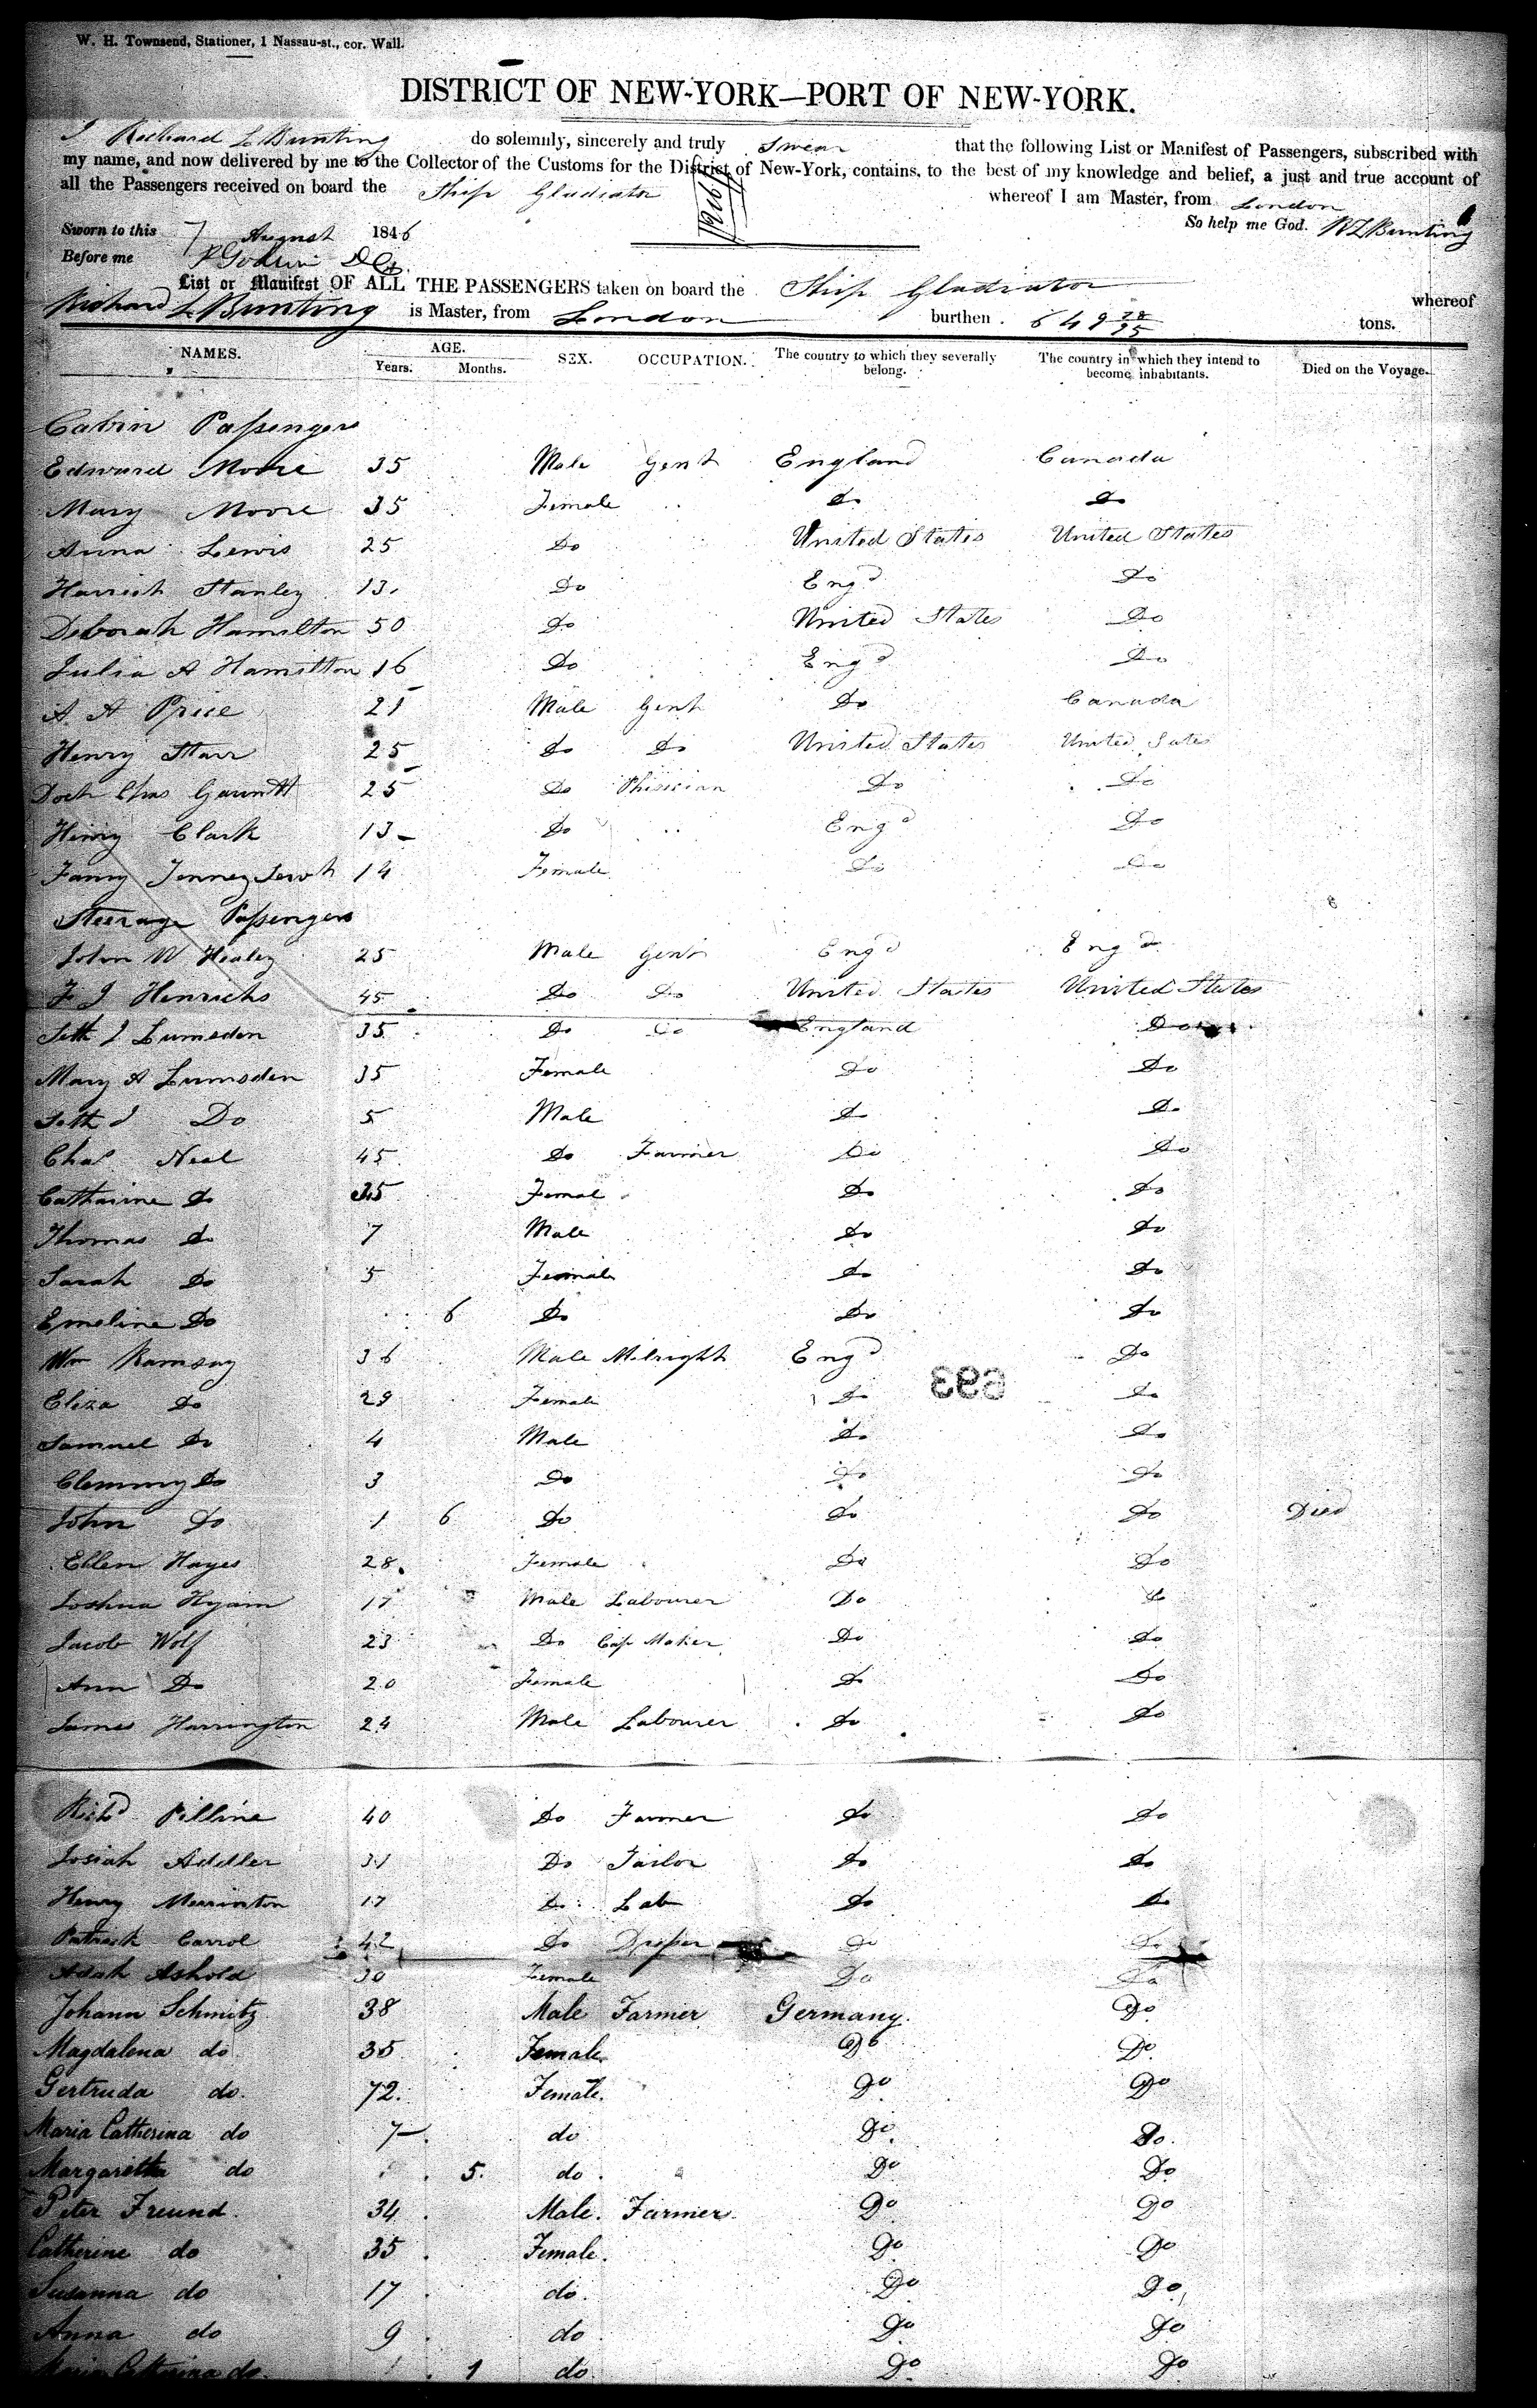 W. H. Townsend, Stationer, 1 Nassau-st., cor. Wall.
DISTRICT OF NEW-YORK—PORT OF NEW-YORK.
I Richard L Bunting do solemnly, sincerely and truly Swear that the following List or Manifest of Passengers, subscribed with
my name, and now delivered by me to the Collector of the Customs for the District of New-York, contains, to the best of my knowledge and belief, a just and true account of
all the Passengers received on board the Ship Gladiator whereof I am Master, from London
Sworn to this 7 August 1846 So help me God. R L Bunting
Before me
List or Manifest OF ALL THE PASSENGERS taken on board the Ship Gladiator whereof
Richard L Bunting is Master, from London burthen 649 28/95 tons.
NAMES. AGE. Years. Months. SEX. OCCUPATION. The country to which they severally belong. The country in which they intend to become inhabitants. Died on the Voyage.
Cabin Passengers
Edward Moore 35 Male Gent England Canada
Mary Moore 35 Female Do Do
Anna Lewis 25 Do United States United States
Harriet Stanley 13 Do Engd Do
Deborah Hamilton 50 Do United States Do
Julia A Hamilton 16 Do Engd Do
A A Price 21 Male Gent Do Canada
Henry Starr 25 Do Do United States United Sates
Doct Chas Gauntt 25 Do Phisician Do Do
Henry Clark 13 Do Engd Do
Fanny Tenney Servt 14 Female Do Do
Steerage Passengers
John W Healey 25 Male Gent Engd Engd
F J Henrichs 45 Do Do United States United States
Seth J Lumsden 35 Do Do England Do
Mary A Lumsden 35 Female Do Do
Seth J Do 5 Male Do Do
Chas Neal 45 Do Farmer Do Do
Catharine Do 35 Femal Do Do
Thomas Do 7 Male Do Do
Sarah Do 5 Female Do Do
Emeline Do 6 Do Do Do
Wm Ramsay 36 Male Milright Engd Do
693
Eliza Do 29 Female Do Do
Samuel Do 4 Male Do Do
Clemmy Do 3 Do Do Do
John Do 1 6 Do Do Do Died
Ellen Hayes 28 Female Do Do
Joshua Hyam 17 Male Labourer Do Do
Jacob Wolf 23 Do Cap Maker Do Do
Ann Do 20 Female Do Do
James Harrington 24 Male Labourer Do Do
Richd Pilline 40 Do Farmer Do Do
Josiah Addler 31 Do Tailor Do Do
Henry Merrinton 17 Do Lab Do Do
Patrick Carrol 42 Do Do Do
Adah Ashold 30 Female Do Do
Johann Schmitz 38 Male Farmer Germany. Do
Magdalena do 35 Female Do Do
Gertruda do. 72. Female. Do Do
Maria Catherina do 7 do Do Do.
Margaretha do 5. do. Do Do
Peter Freund. 34 Male. Farmer. Do Do
Catherine do 35 Female. Do Do
Susanna do 17 do. Do Do
Anna do 9 do Do Do
Maria Catherina do. 1 do. Do Do